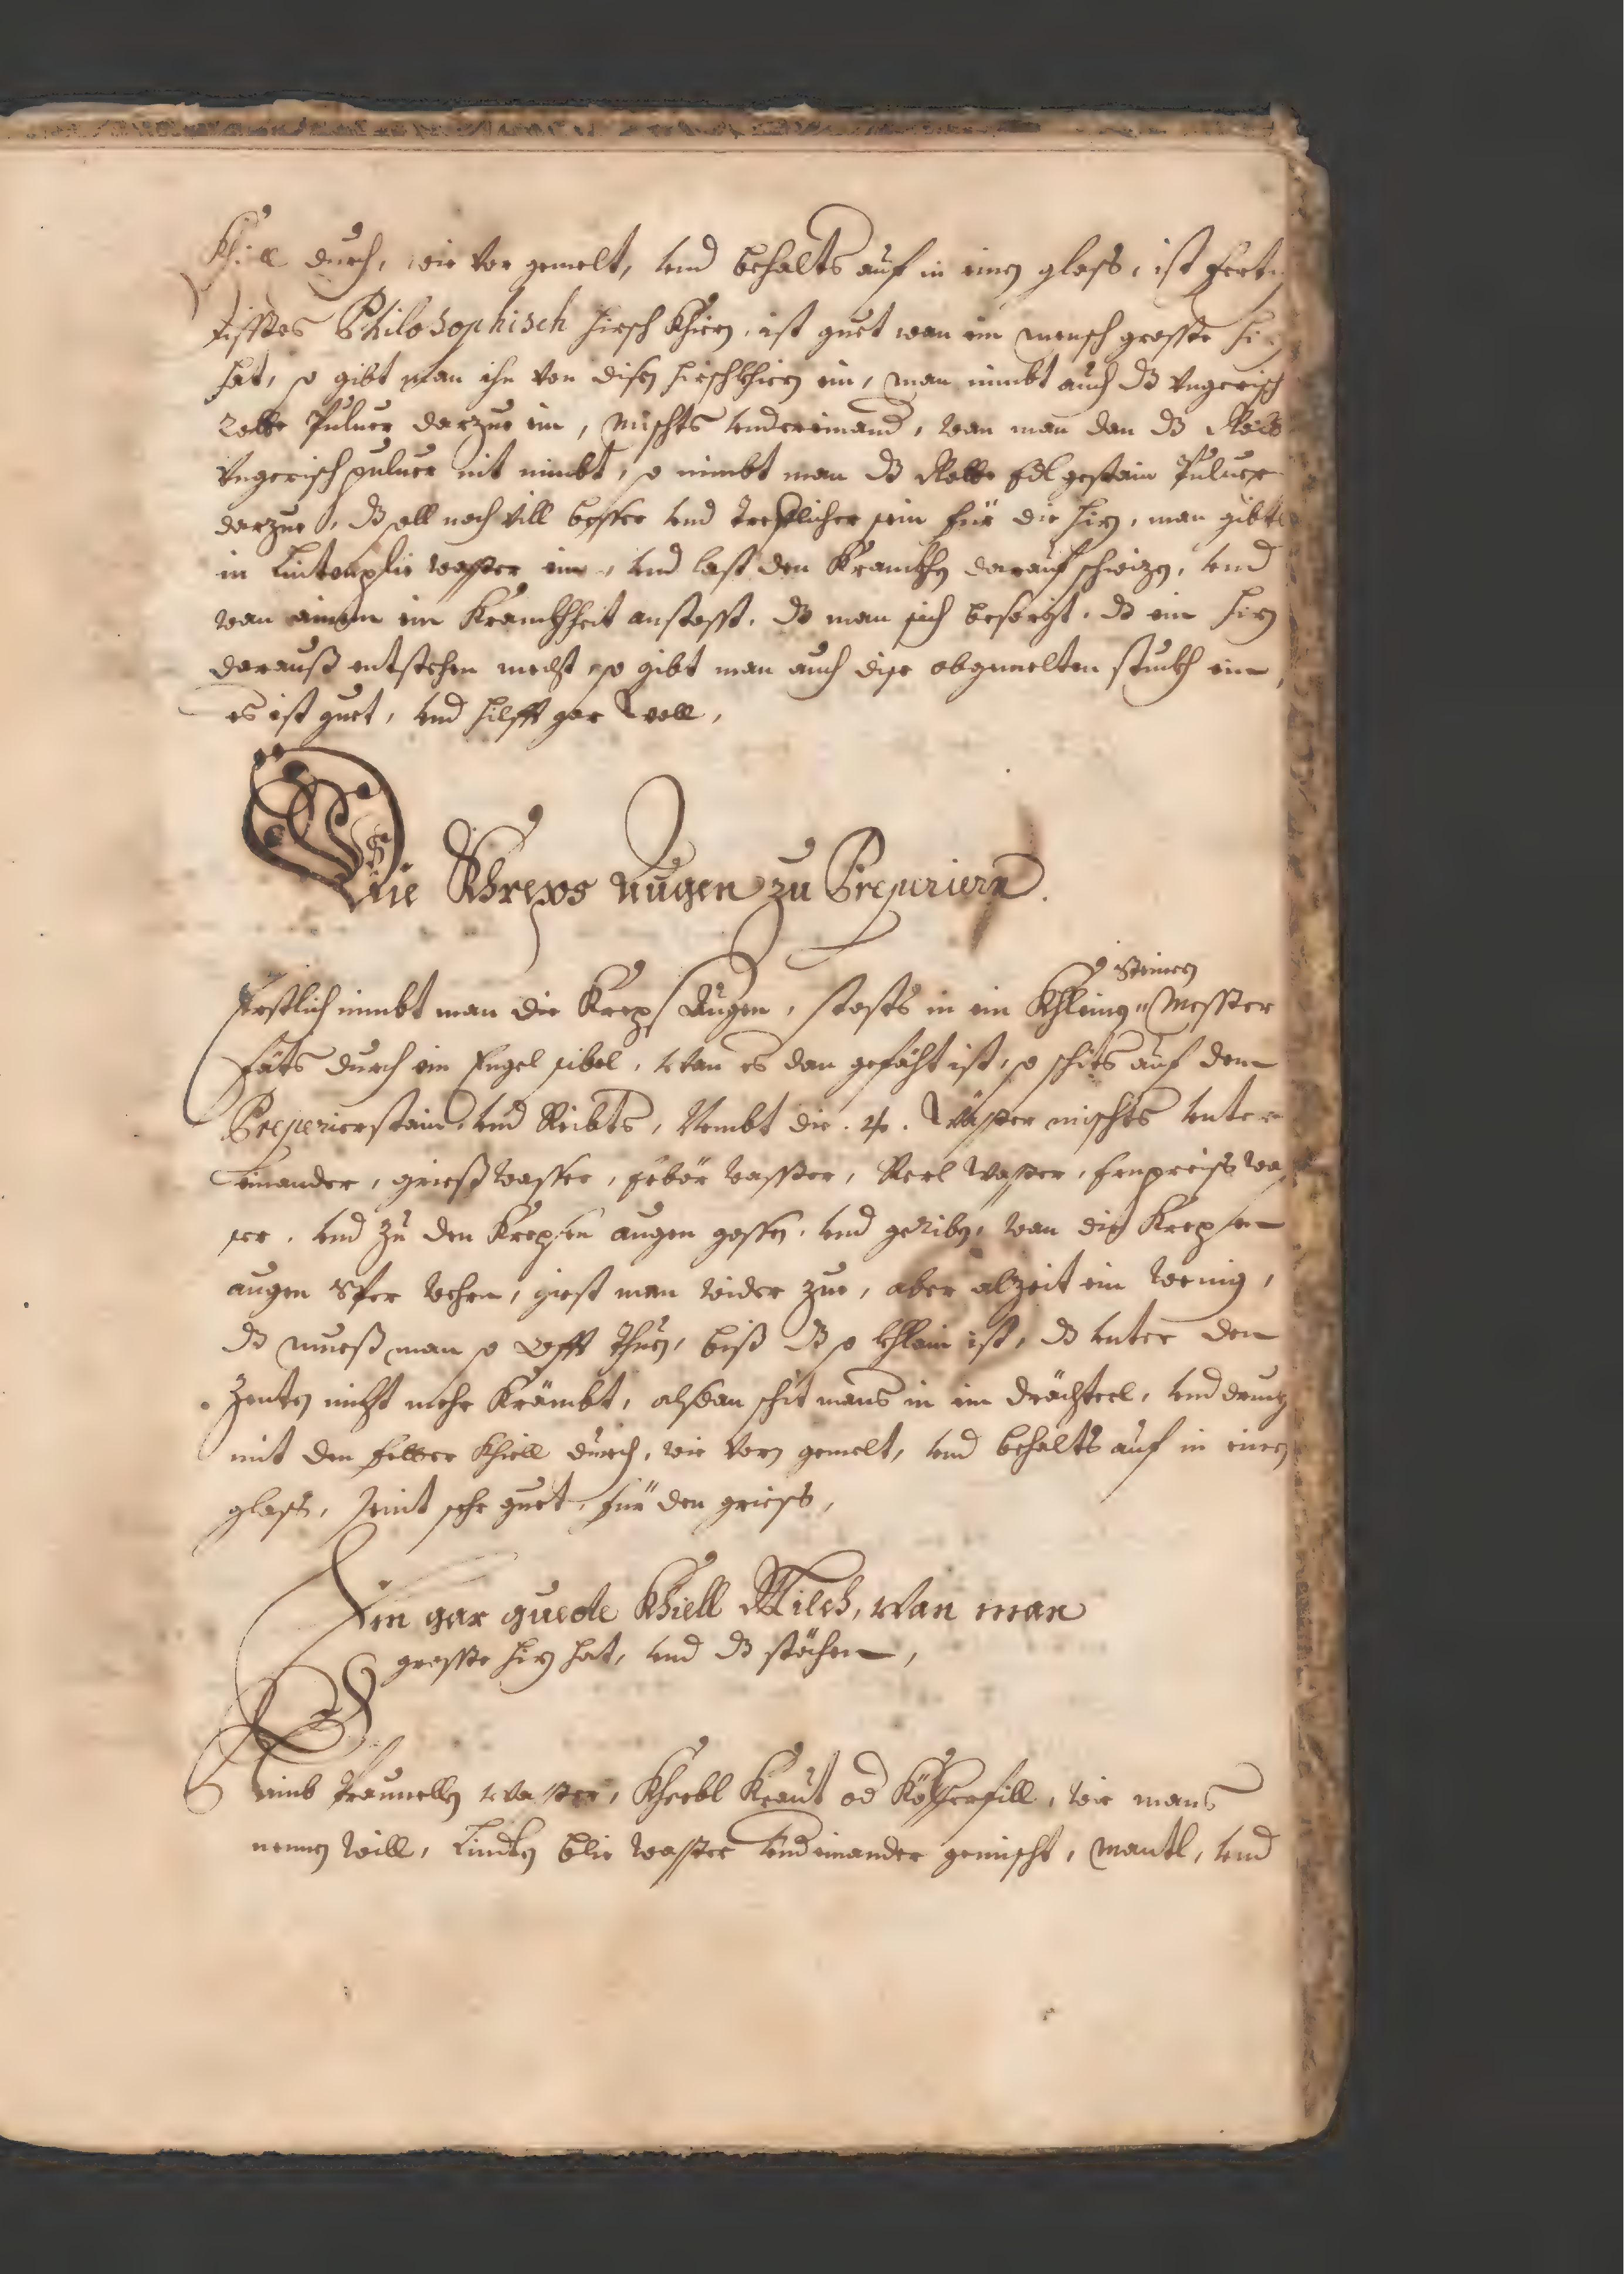 Khill durch, wie vor gemelt, vnd behalts auf in einen glass, ist fert
disses Philosophisch hirsch khirn, ist guet wan ein mensch grosse hiz
hat, so gibt man ihn von disen hirschkhirn ein, man nimbt auch dz vngerisch
Rotte Puluer darzue ein, mischts vndereinand, wan man dan dz Rotte
vngerisch puluer nit nimbt, so nimbt man dz Rotte Edl gestain Puluer
darzue, dz soll noch vill besser vnd treflicher sein für die hiz, man gibts
in Lintenplie wasser ein, vnd last den Krankhen darauf schwizen, vnd
wan einem ein Krankhheit anstosst, dz man sich besorgt, dz ein hiz
darauß entstehen mecht so gibt man auch dise obgemelten stuckh ein,
es ist guet, vnd hilfft gar woll,
Die Khreps augen zu Preperiern.
Erstlich nimbt man die Kreps Augen, stosts in ein Khleinen Steinen Messer
fäts durch ein Engel sibel, wan es dan gefäht ist, so schits auf den
Preperierstain, vnd Reibts, Nembt die . 4 . wässer mischts vnter
einander, grieß wasser, Erbör wasser, Perl wasser, Ernpreiss was
ser, vnd zu den Krepsen augen gossen, vnd geriben, wan die Krepsen
augen Sper wehrn, giest man wider zue, aber alzeit ein wenig,
dz mueß man so offt thuen, biß dz so khlein ist, dz vnter den
Zenten nicht mehr Krämbt, alsdan schit mans in ein drächterl, vnd druckh
mit den felber Khiell durch, wie vorn gemelt, vnd behalts auf in einen
glass, seint sehr guet für den griess,
Ein gar guede Khiell Milch, wan man
grosse hiz hat, vnd dz stöchen,
Nimb Praunellen wasser, Kherbl Kraut od Köhlfill, wie mans
nennen will, Linden blie wasser vndeinander gemischt, mantl, vnd